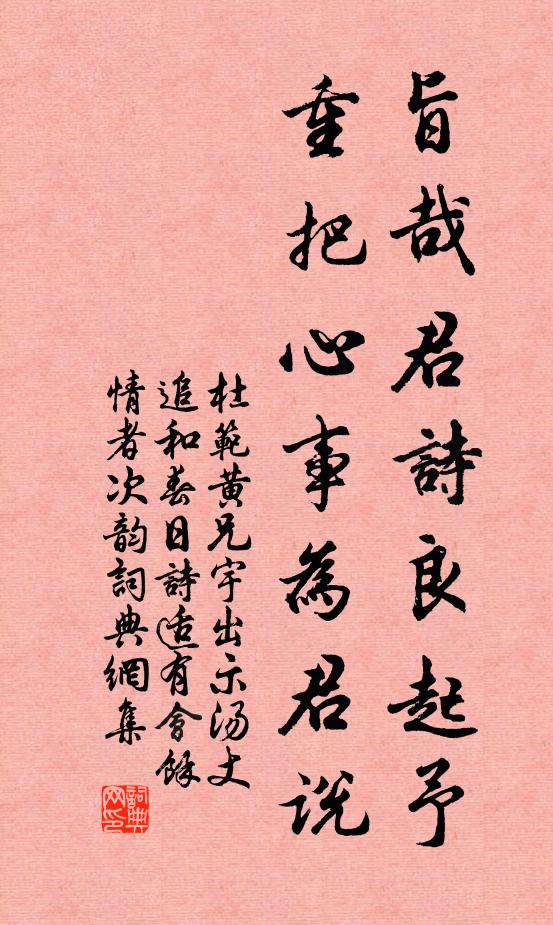 旨哉君詩良起予
重把心事為君說
杜範黄兄宇出示湯丈
追和春日詩适有會餘
情者次韵詞典網集
詞典网印